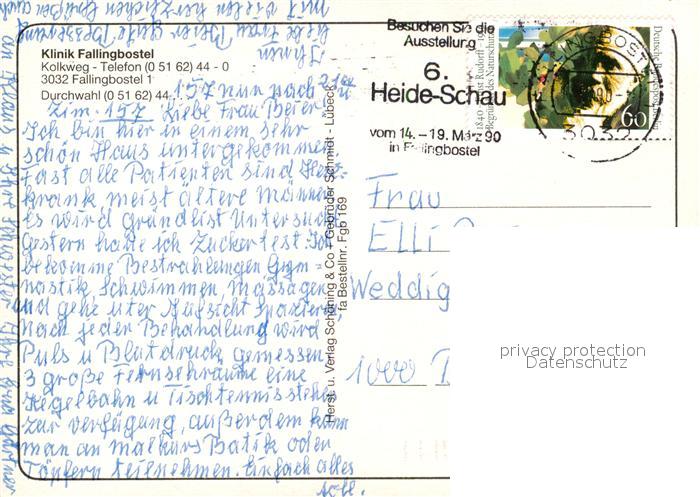 Klinik Fallingbostel
Kolkweg - Telefon (0 51 62) 44 - 0
3032 Fallingbostel 1
Durchwahl (0 51 62) 44 157 nun nach
Zim. 157 Liebe Frau Beier
Ich bin hier in einem sehr
schön Haus untergekommen
Fast alle Patienten sind Herz-
krank meist ältere Männer
Es wird gründlist Untersucht
Gestern hatte ich Zuckertest. Ich
bekomme Bestrahlungen Gym-
nastik, Schwimmen, Massagen
und gehe unter Aufsicht
Nach jeder Behandlung wird
Puls u Blutdruck gemessen
3 große Fernsehräume eine
Kegelbahn u Tischtennis stehen
zur verfügung, außerdem kann
man an malkurs Batik oder
Töpfern teilnehmen. Einfach alles
toll.
Ihnen
liebe Frau Beier Gute Besserung
mit vielen herzlichen Grüßen auch
an Klaus u Ihre Schwester Ihre
Herst. u. Verlag Schöning & Co + Gebrüder Schmidt - Lübeck
fa Bestellnr. Fgb 169
Besuchen Sie die
Ausstellung
6.
Heide-Schau
vom 14. – 19. März 90
in Fallingbostel
1840 Ernst Rudorff
Begründer des Naturschutzes
Deutsche Bundespost
60
3032
Frau
Elli
Weddig
1000
privacy protection
Datenschutz